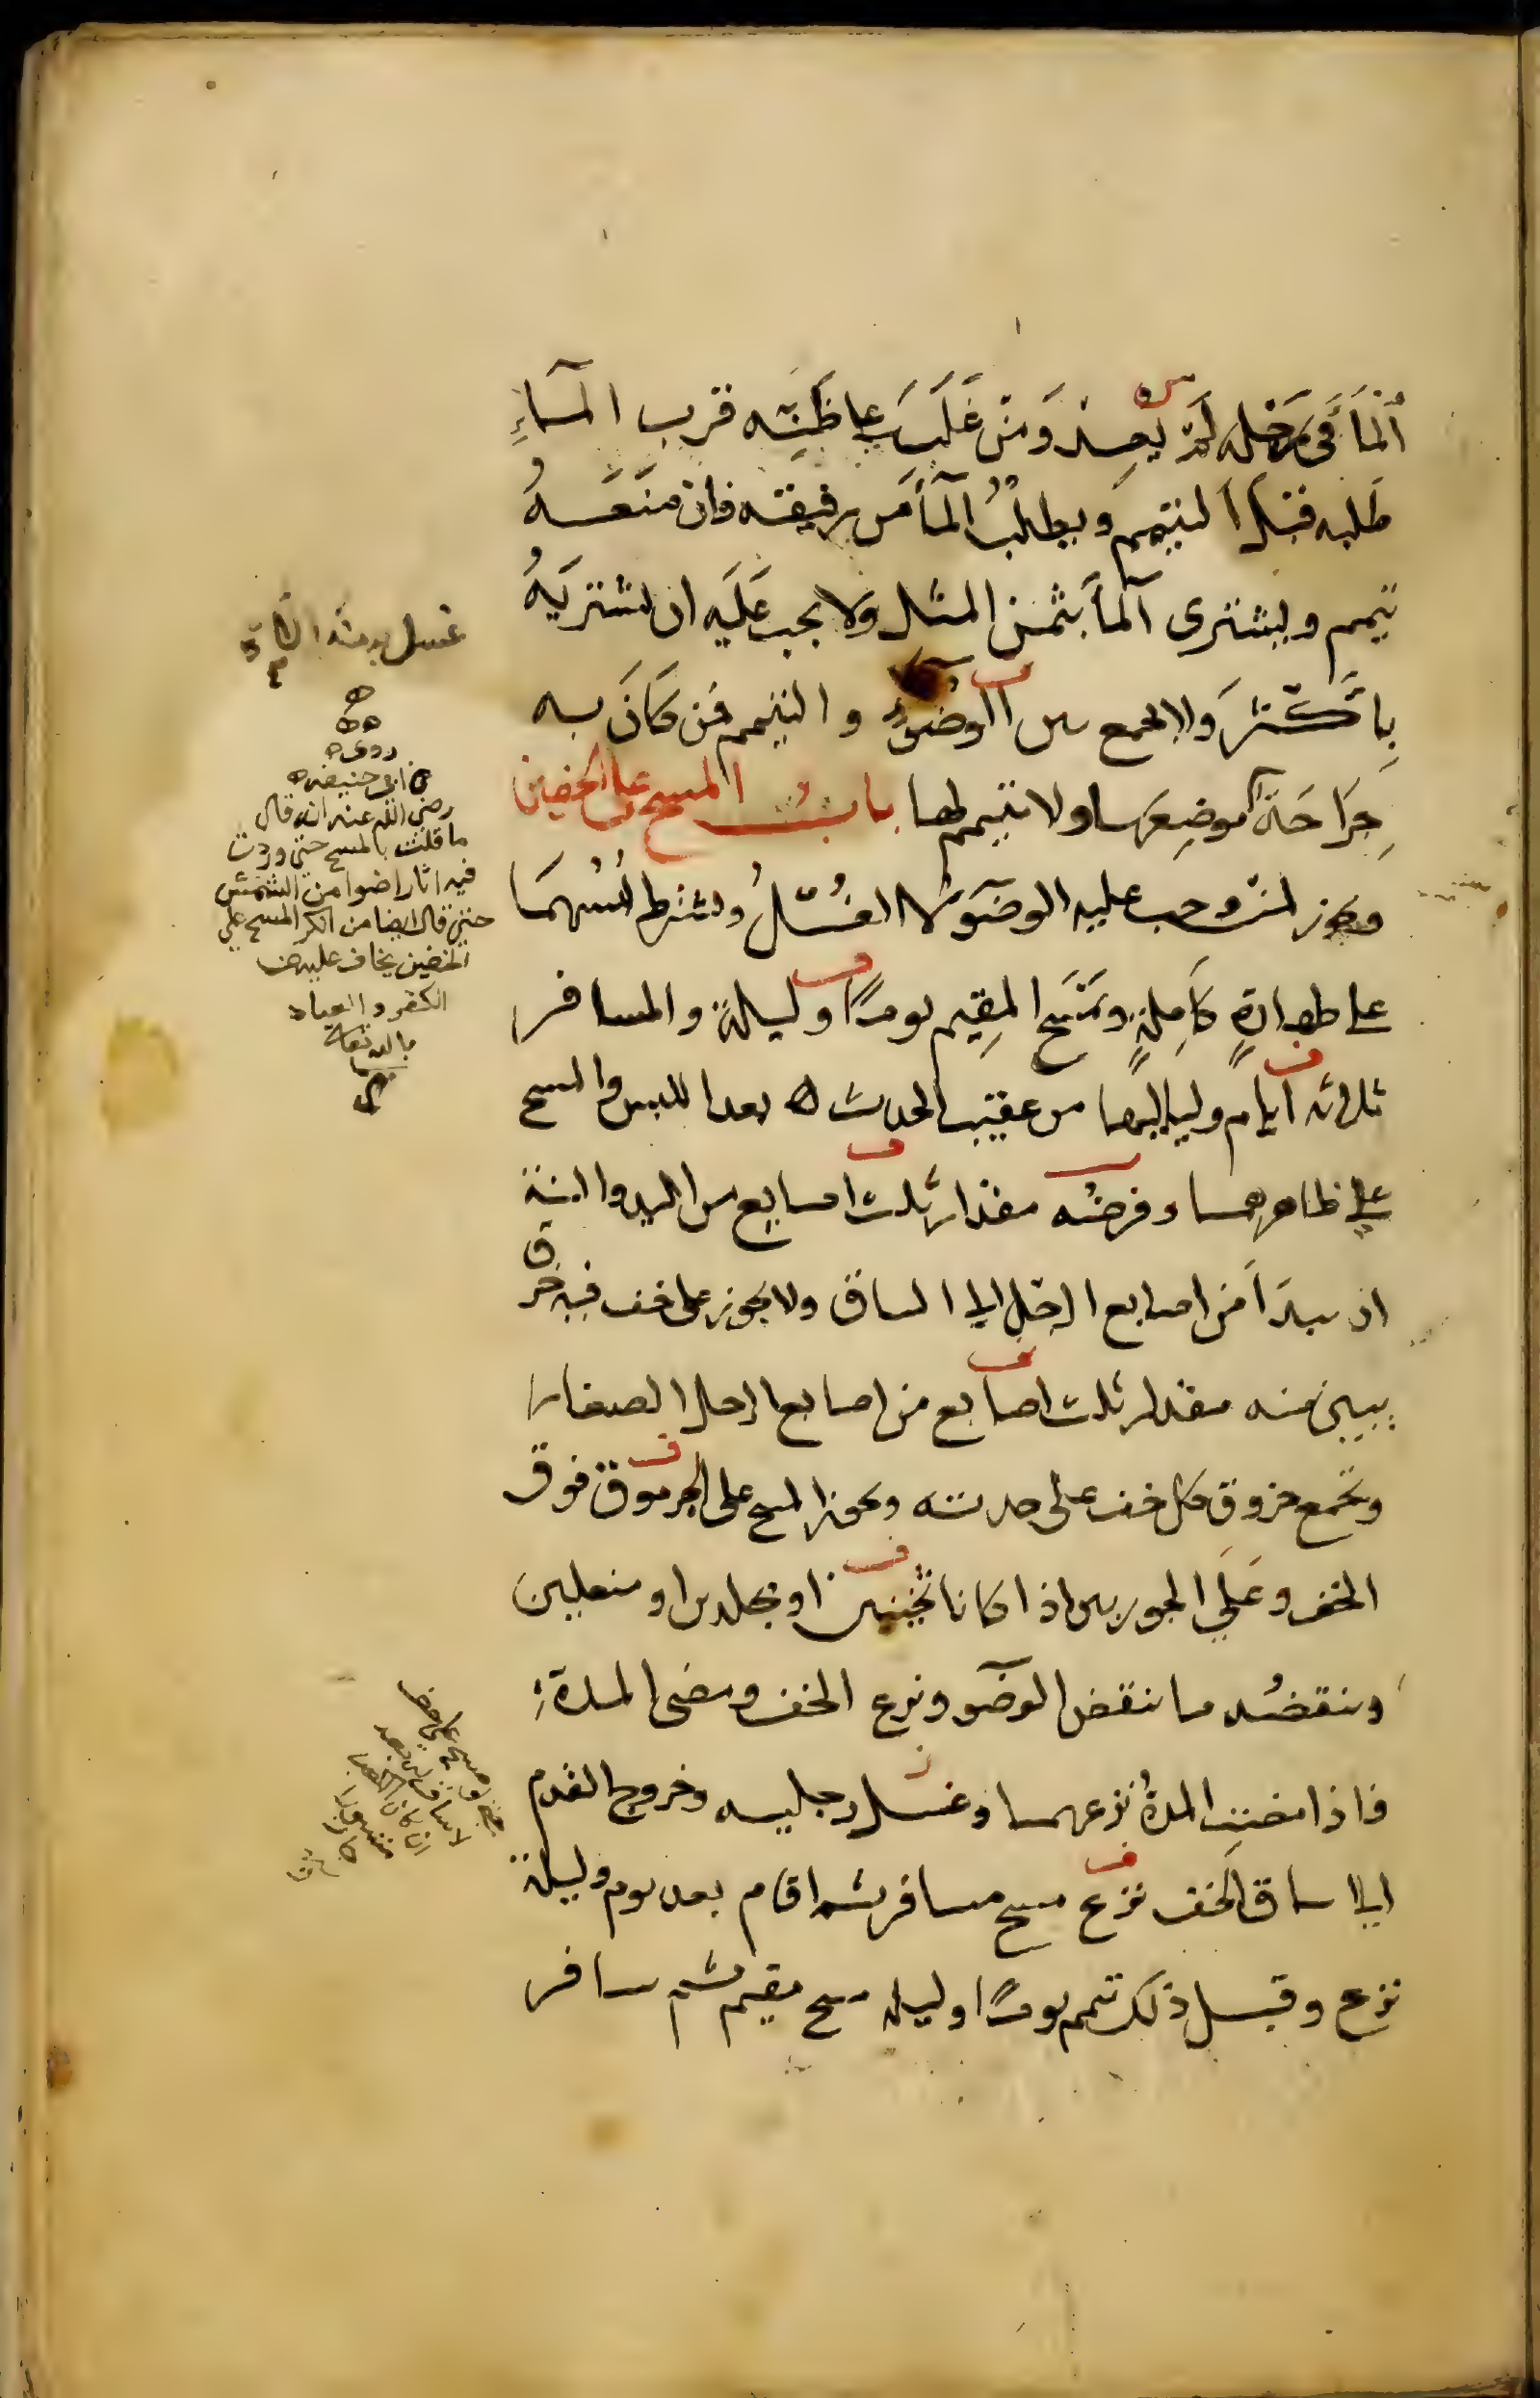 المأ فى رحله لم يعد ومن غلب على ظنه قرب المآءِ
طلبه قبل التيمم ويطلب المأ من رفيقه فان منعه
تيمم ويشترى المأ بثمن المثل ولا يجب عليه ان يشتريه
باكثر ولا يجمع بين الوضوء والتيمم فمن كان به
جراحة موضعها ولا تيمم لها باب المسح على الخفين
ويجوز لمن وجب عليه الوضوء لا الغسل ويشترط لبسهما
على طهارةٍ كاملةٍ ويمسح المقيم يوماً وليلة والمسافر
ثلاثه أيام ولياليها من عقيب الحدث ه بعد اللبس والمسح
على ظاهرهما وفرضه مقدار ثلث اصابع من اليد والسنة
ان يبدأ من اصابع الرجل الى الساق ولا يجوز على خف فيه خرق
يبين منه مقدار ثلث اصابع من اصابع الرجل الصغار
وتجمع خروق كل خف على حدته ويجوز المسح على الجرموق فوق
الخف وعلى الجوربين اذا كانا ثخينين او مجلدين او منعلين
وينقضه ما ينقض الوضوء ونزع الخف ومضى المدة
فاذا مضت المدة نزعهما وغسل رجليه وخروج القدم
الى ساق الخف نزع مسح مسافر ثم اقام بعد يوم وليلة
نزع وقبل ذلك تمم يوماً وليله مسح مقيم ثم سافر
غسل
روى
عن ابى حنيفه
رضى الله عنه انه قال
ما قلت بالمسح حتى وردت
فيه اثار اضوا من الشمس
حتى قال ايضا من انكر المسح على
الخفين يخاف عليه
الكفر والعياد
بالله تعالى